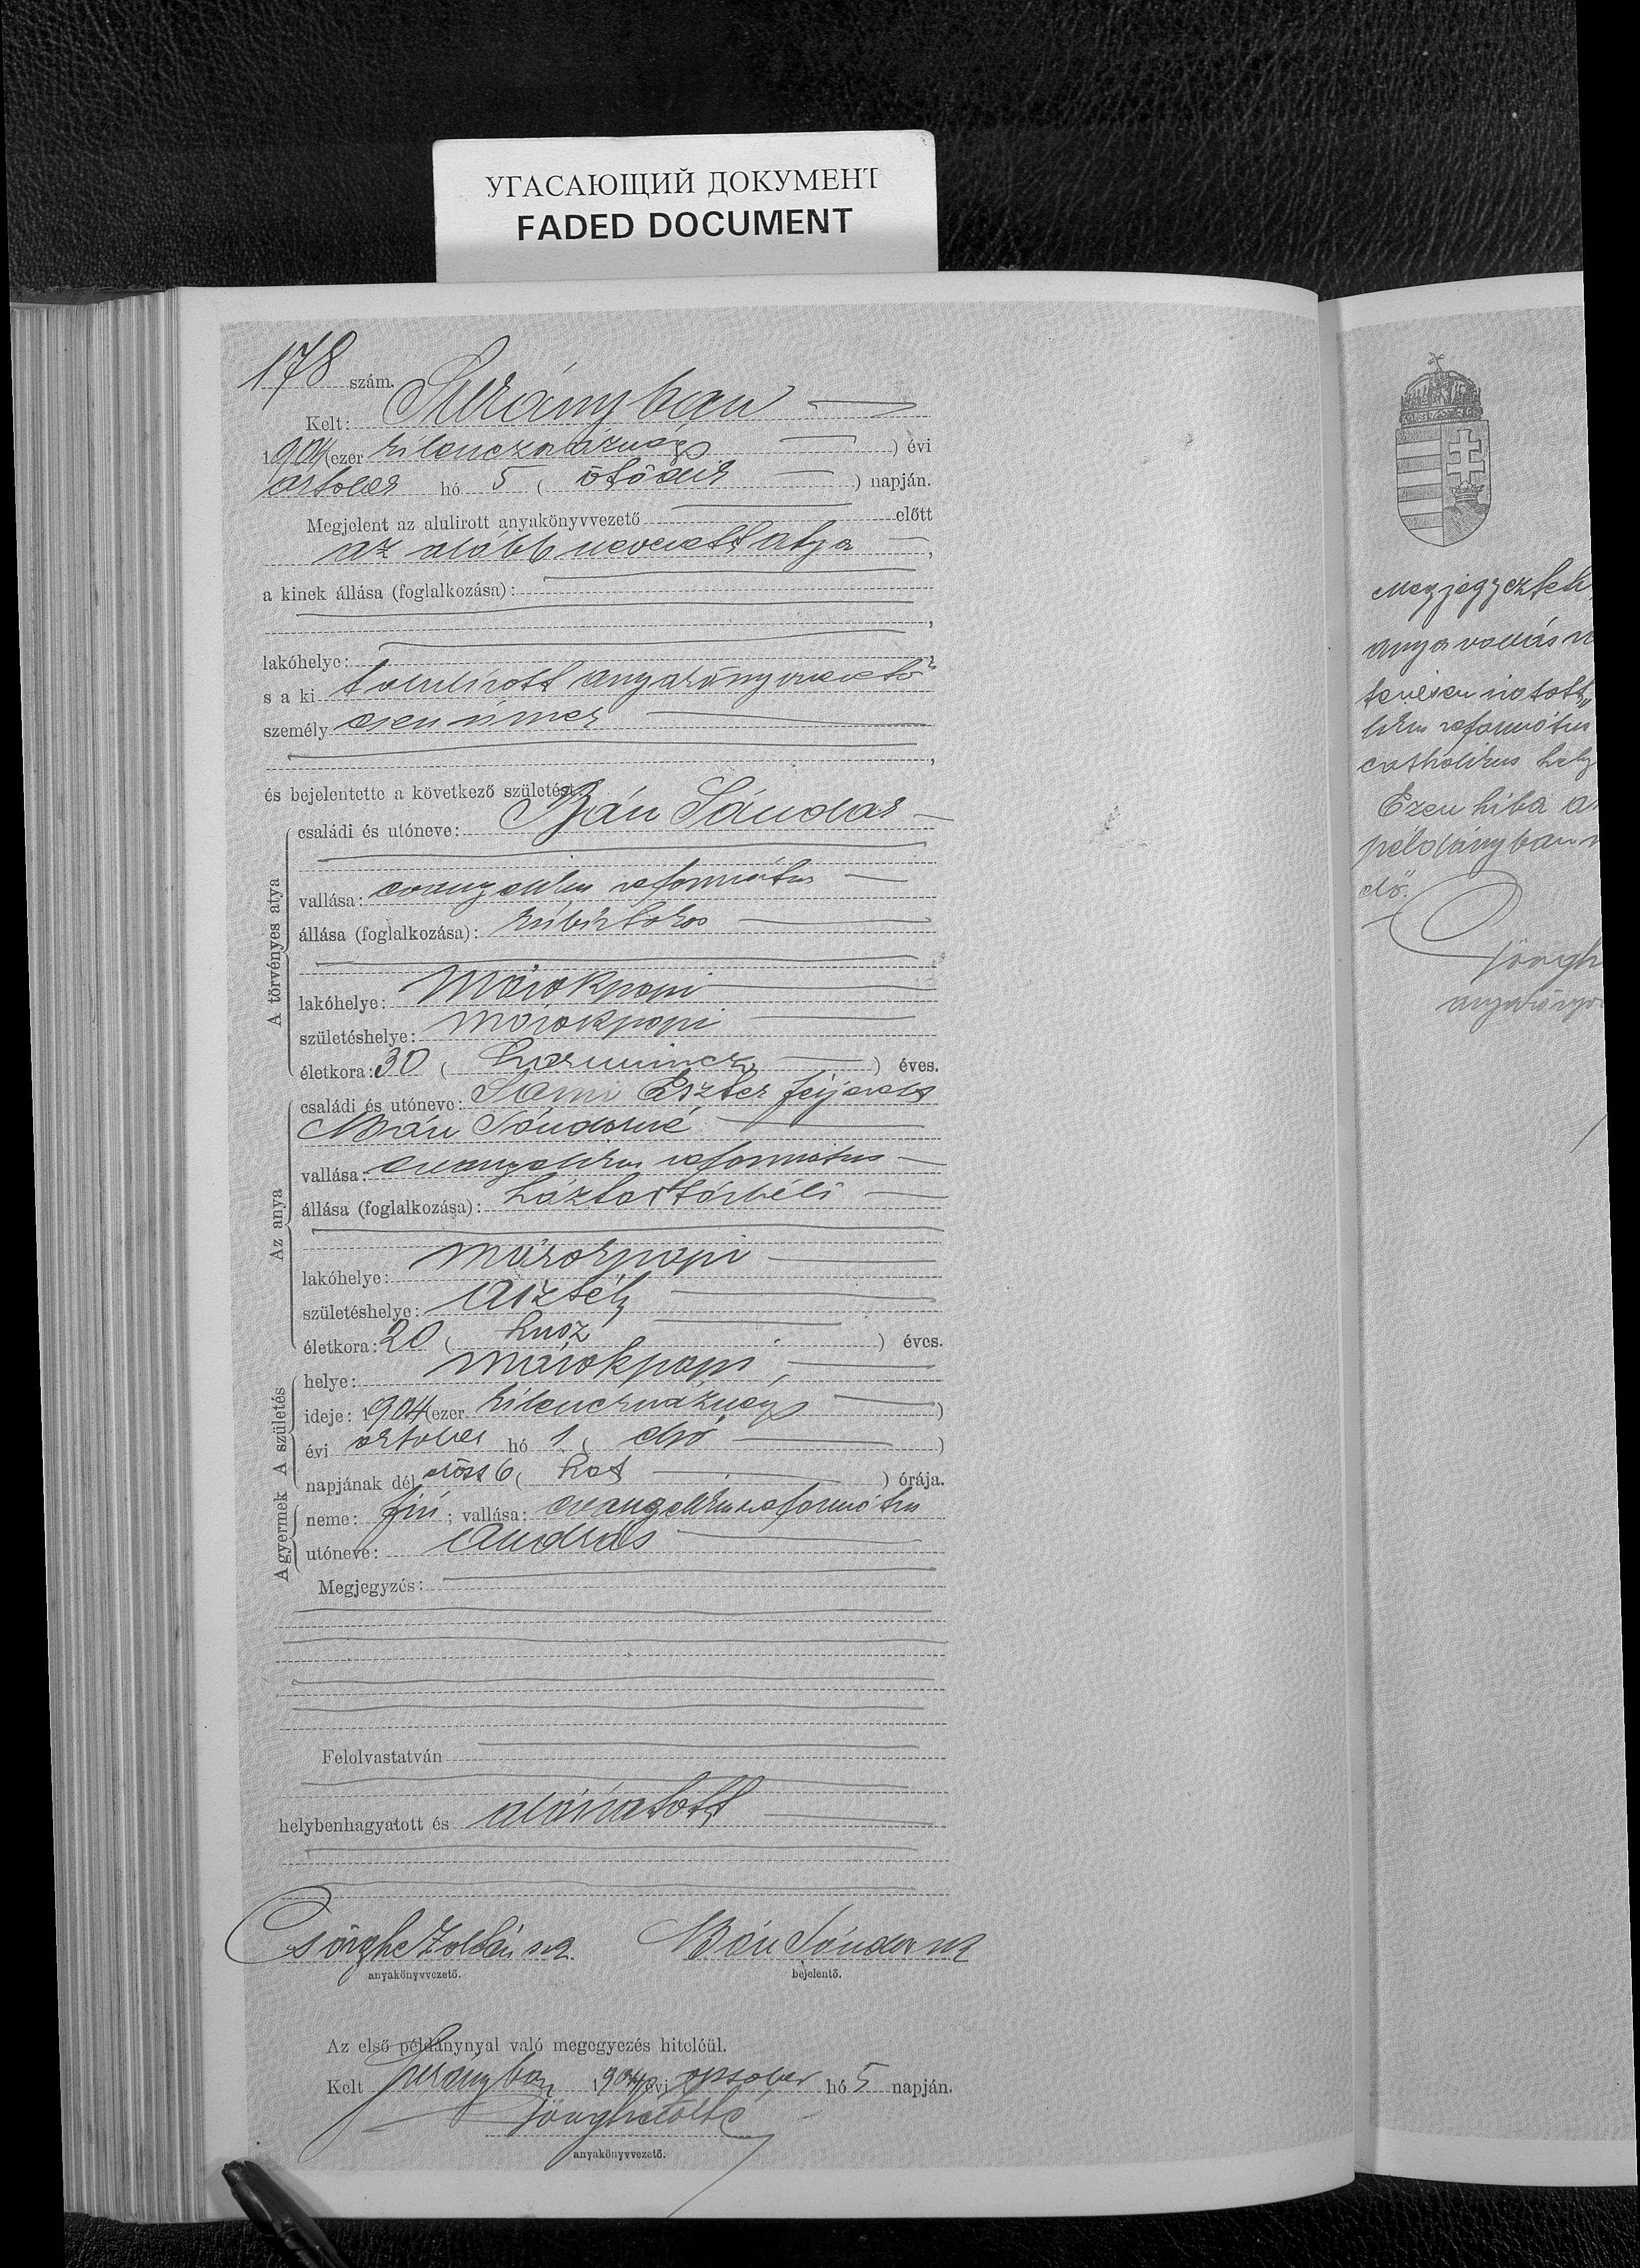 УГАСАЮЩИЙ ДОКУМЕНТ
FADED DOCUMENT
178 szám.
Kelt: Surányban
1904 (ezer kilenczszáznégy ) évi
october hó 5 ( ötödik ) napján.
Megjelent az alulirott anyakönyvvezető előtt
az alább nevezett atya ,
a kinek állása (foglalkozása):
,
lakóhelye: ,
s a ki alulírott anyakönyvvezető
személyesen ismer
,
és bejelentette a következő születést:
A törvényes atya
családi és utóneve: Bán Sándor
vallása: evangelikus református
állása (foglalkozása): kisbirtokos
lakóhelye: Márokpapi
születéshelye: Márokpapi
életkora: 30 ( harmincz ) éves.
Az anya
családi és utóneve: Eszter férjezett
Bán Sándorné
vallása: evangelikus református
állása (foglalkozása): háztartásbeli
lakóhelye: Márokpapi
születéshelye: Asztély
életkora: 20 ( husz ) éves.
A születés
helye: Márokpapi
ideje: 1904 (ezer kilenczszáznégy )
évi october hó 1 ( első )
napjának dél előtt 6 ( hat ) órája.
A gyermek
neme: fiú ; vallása: evangelikus református
utóneve: András
Megjegyzés:
Felolvastatván
helybenhagyatott és aláíratott
Zoltán sk. Bán Sándor sk
anyakönyvvezető. bejelentő.
Az első példánynyal való megegyezés hiteléül.
Kelt Surányban 1904 évi october hó 5 napján.
anyakönyvvezető.
Megjegyeztetik
anya vallás
tevésen iratott
likus református
catholikus hely
Ezen hiba a
példányban
elő.